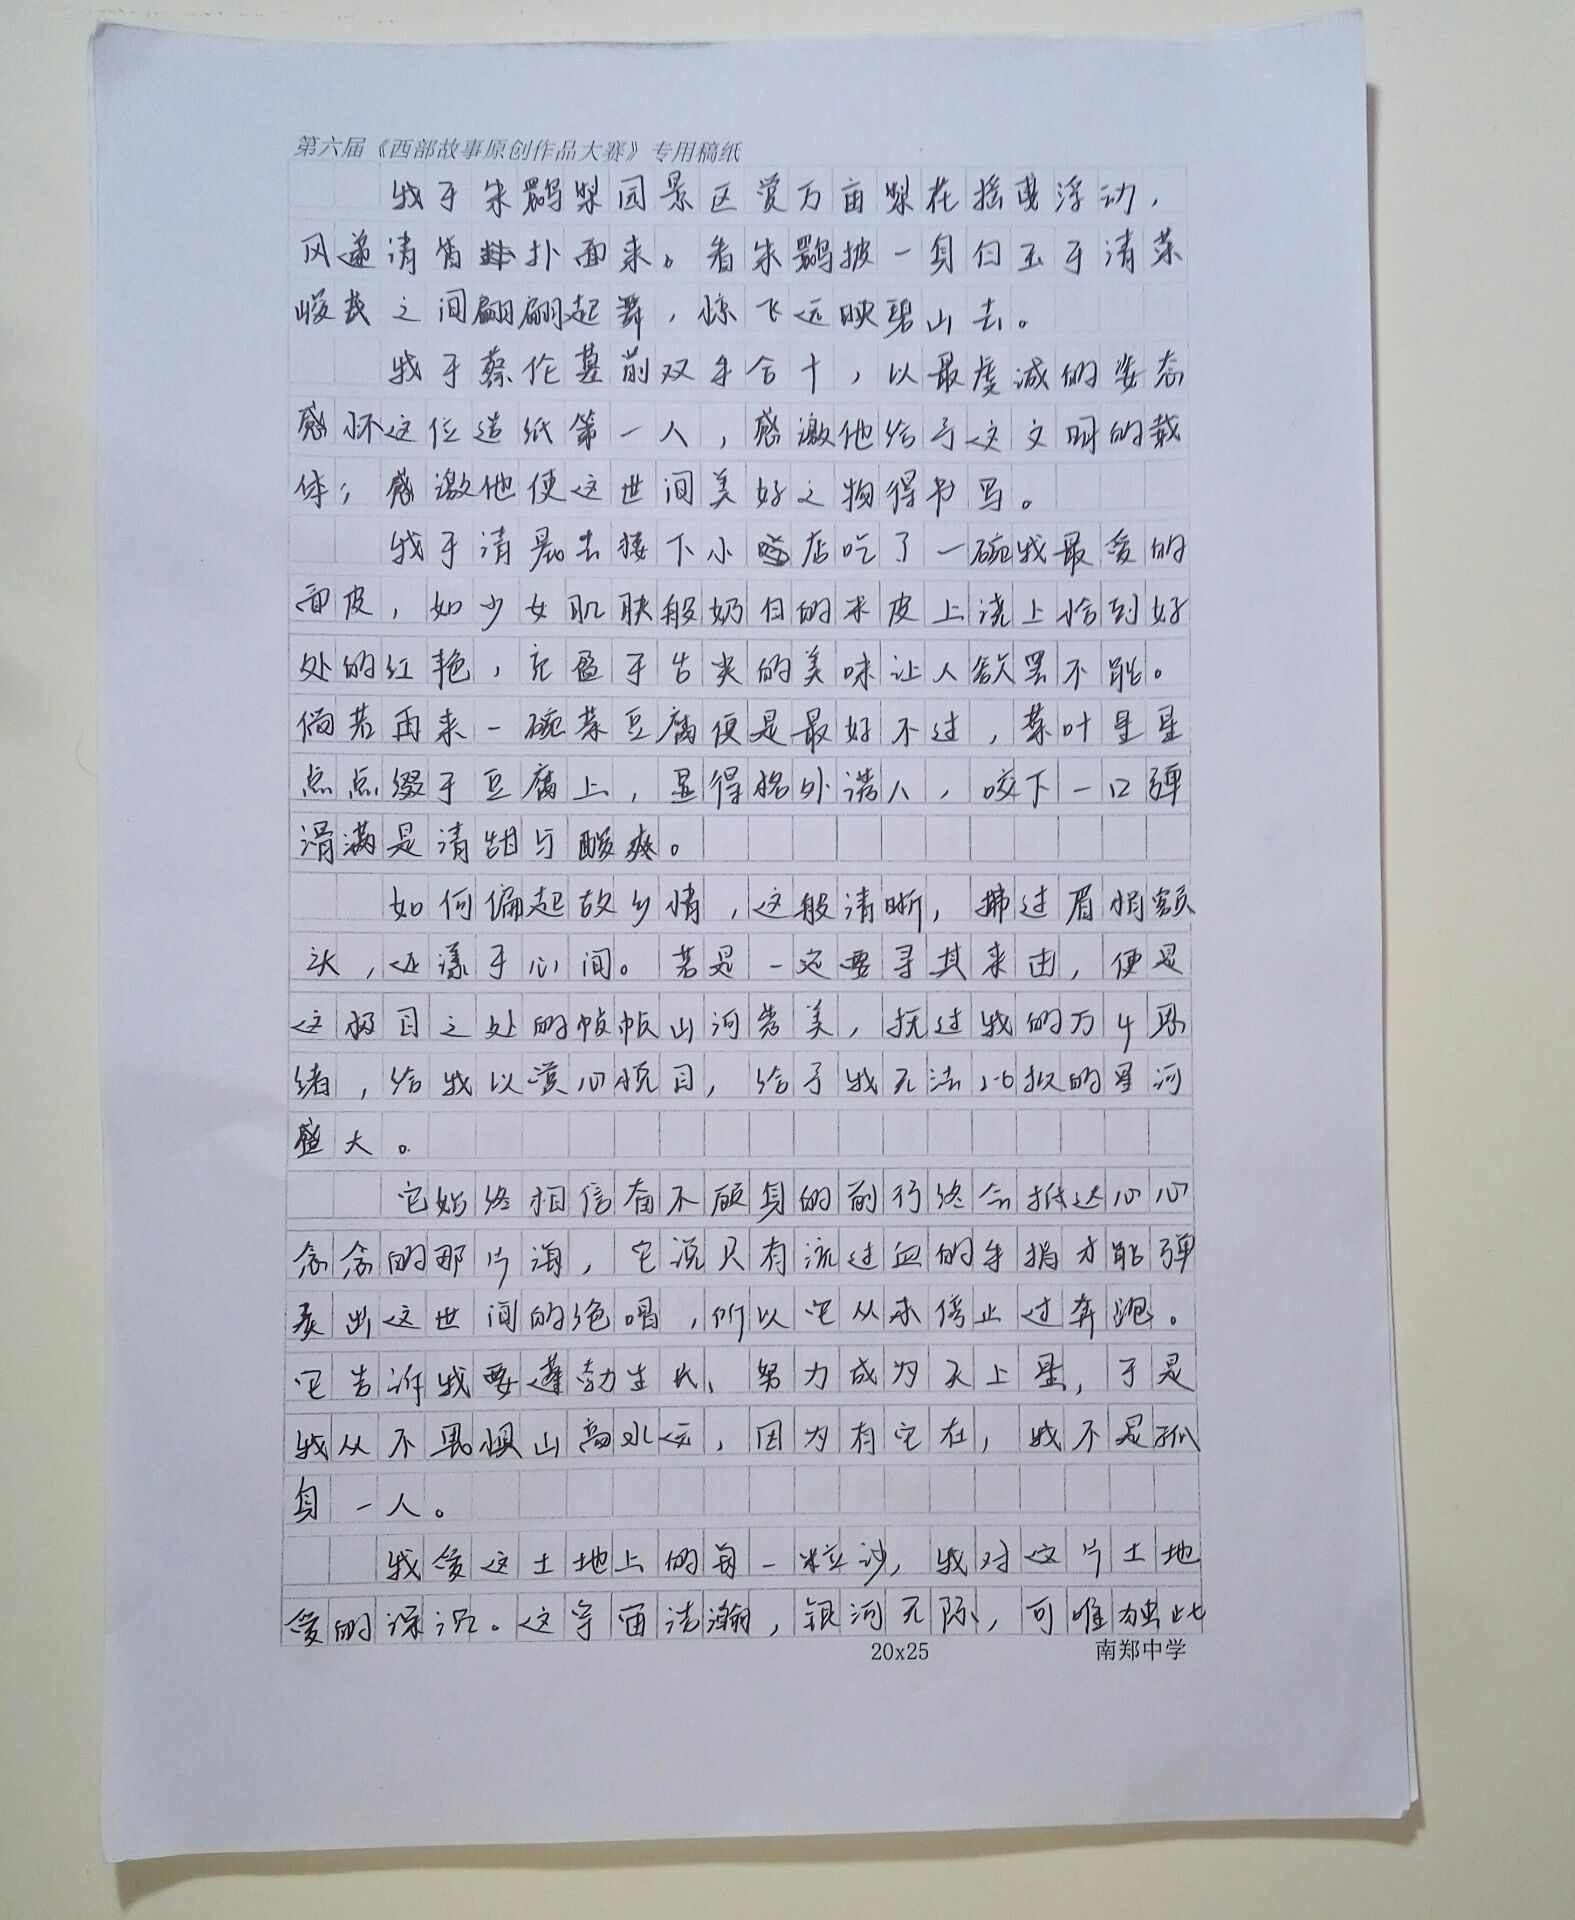 第六届《西部故事原创作品大赛》专用稿纸
我于朱鹮梨园景区赏万亩梨花摇曳浮动，
风递清香扑面来。看朱鹮披一身白玉于清荣
峻茂之间翩翩起舞，惊飞远映碧山去。
我于蔡伦墓前双手合十，以最虔诚的姿态
感怀这位造纸第一人，感激他给予这文明的载
体；感激他使这世间美好之物得书写。
我于清晨去楼下小店吃了一碗我最爱的
面皮，如少女肌肤般奶白的米皮上浇上恰到好
处的红艳，充盈于舌尖的美味让人欲罢不能。
倘若再来一碗菜豆腐便是最好不过，菜叶星星
点点缀于豆腐上，显得格外诱人，咬下一口弹
滑满是清甜与酸爽。
如何偏起故乡情，这般清晰，拂过眉梢额
头，还漾于心间。若是一定要寻其来由，便是
这极目之处的帧帧山河秀美，抚过我的万千思
绪，给我以赏心悦目，给予我无法比拟的星河
盛大。
它始终相信奋不顾身的前行终会抵达心心
念念的那片海，它说只有流过血的手指才能弹
奏出这世间的绝唱，所以它从未停止过奔跑。
它告诉我要蓬勃生长、努力成为天上星，于是
我从不畏惧山高水远，因为有它在，我不是孤
身一人。
我爱这土地上的每一粒沙，我对这片土地
爱的深沉。这宇宙浩瀚，银河无际，可唯独此
20x25
南郑中学